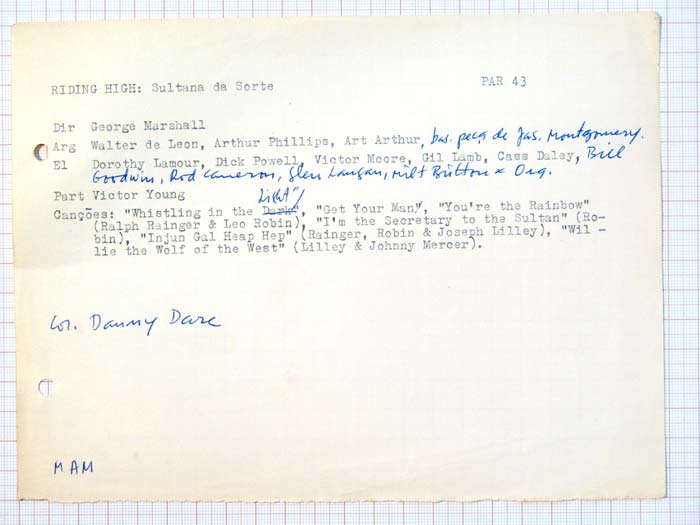 RIDING HIGH: Sultana da Sorte PAR 43
Dir George Marshall
Arg Walter de Leon, Arthur Phillips, Art Arthur, bas. peça de Jas. Montgomery.
El Dorothy Lamour, Dick Powell, Victor Moore, Gil Lamb, Cass Daley, Bill
Goodwin, Rod Cameron, Glen Langan, Milt Britton & Orq.
Part Victor Young
Light"/
Canções: "Whistling in the Dark", "Get Your Man", "You're the Rainbow"
(Ralph Rainger & Leo Robin), "I'm the Secretary to the Sultan" (Ro-
bin), "Injun Gal Heap Hep" (Rainger, Robin & Joseph Lilley), "Wil -
lie the Wolf of the West" (Lilley & Johnny Mercer).
Cor. Danny Dare
MAM